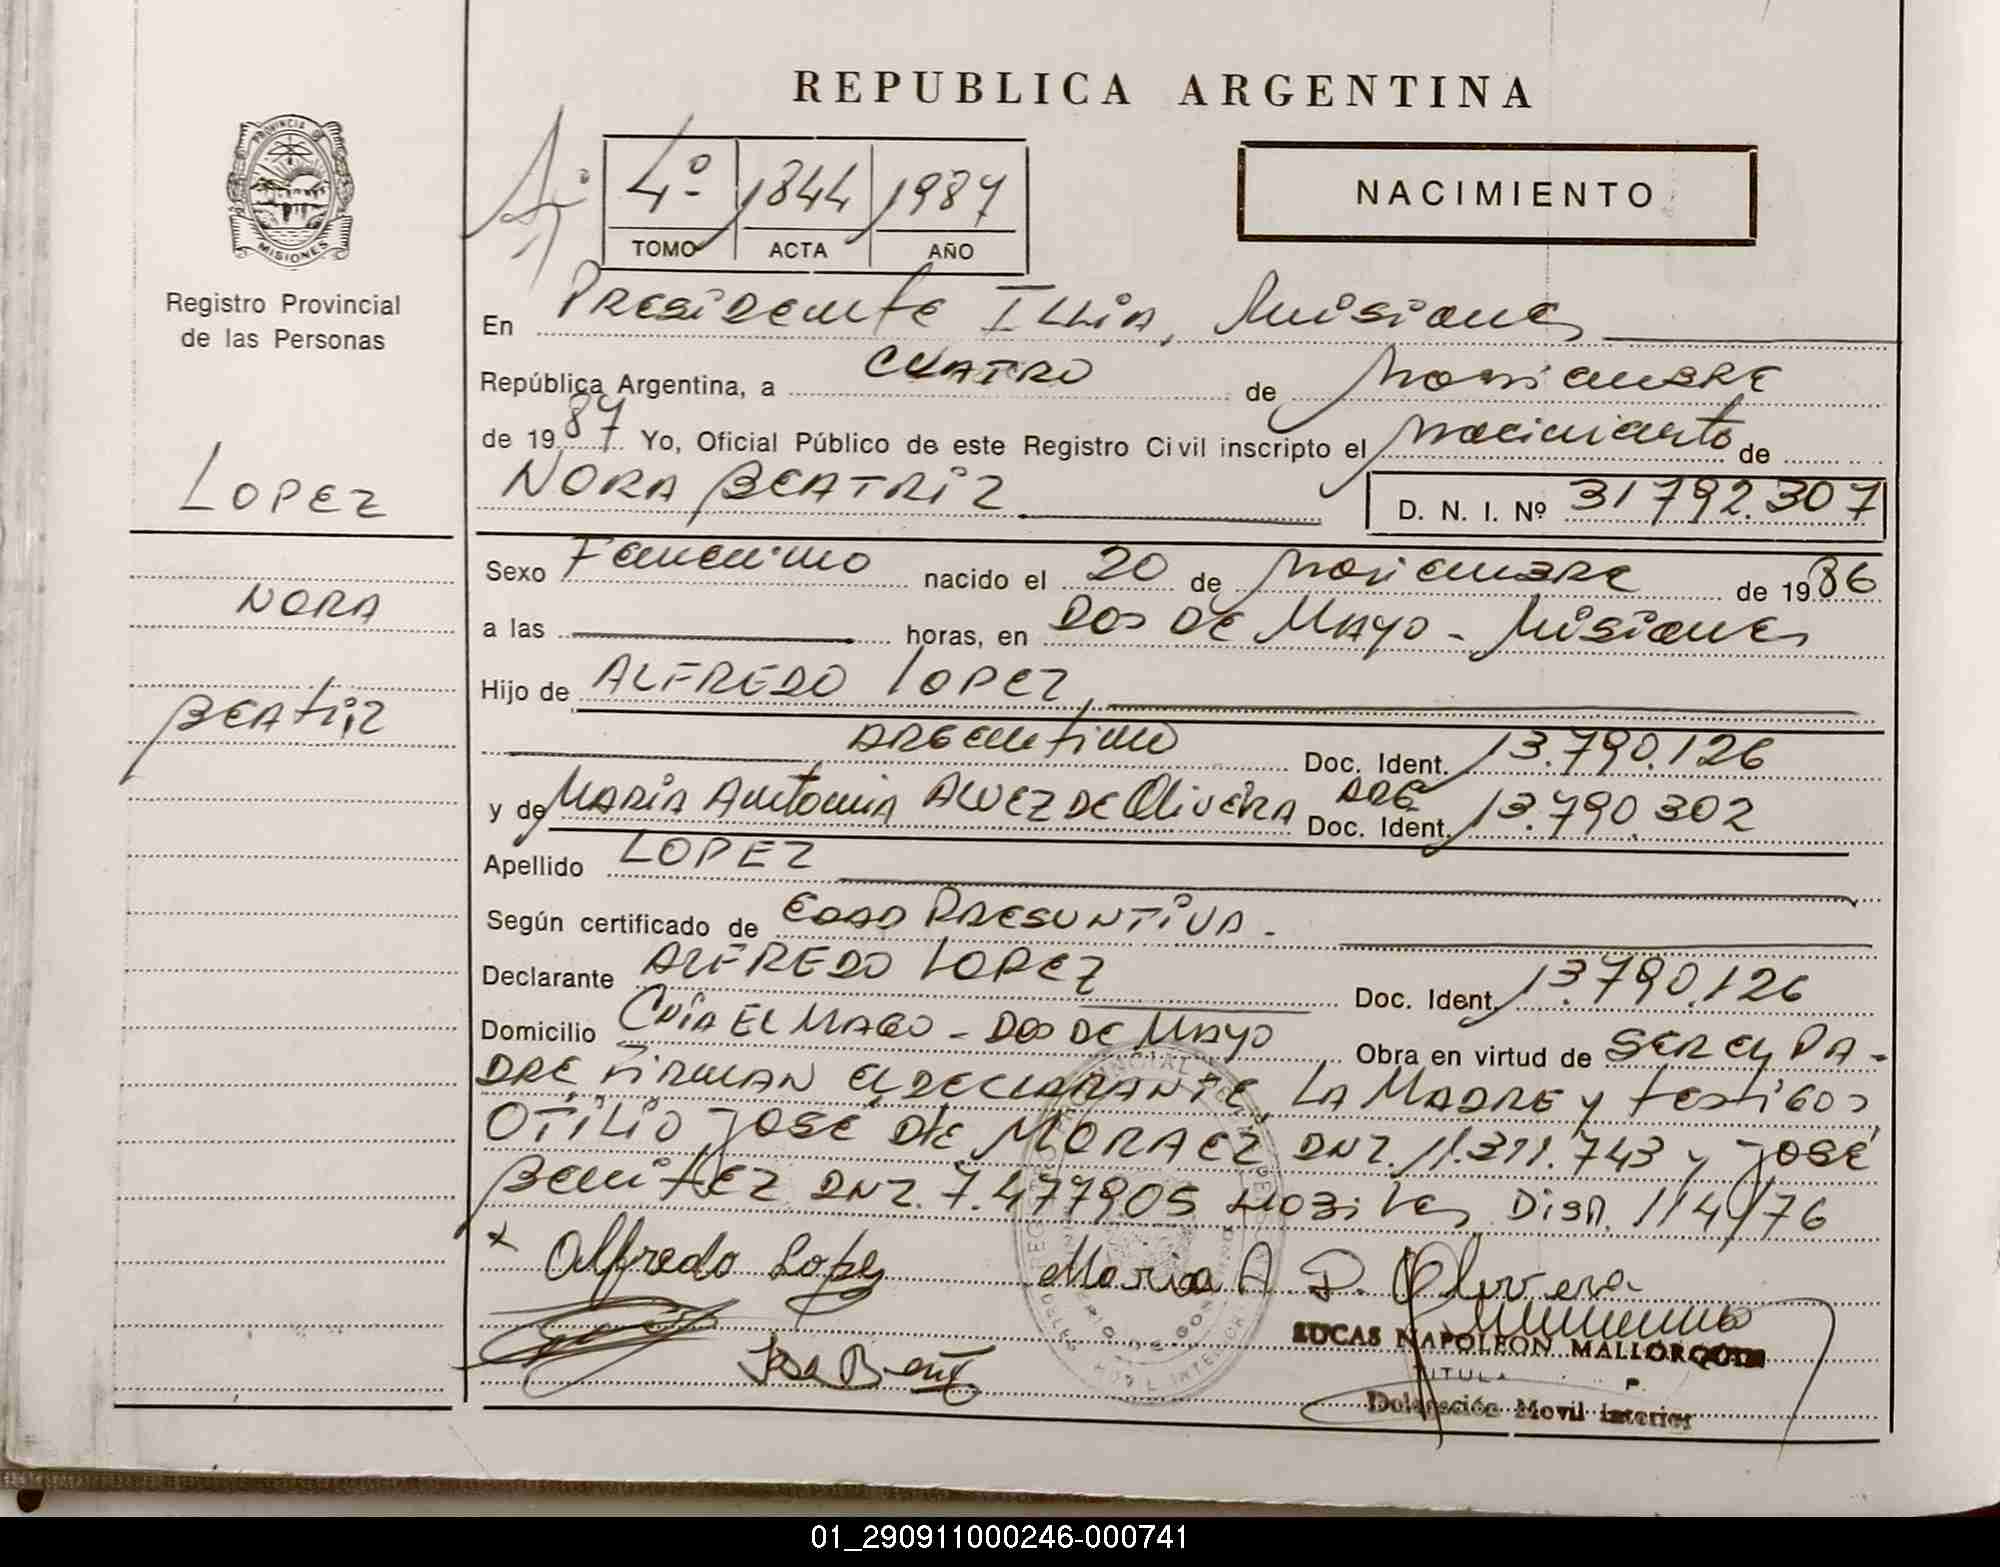 REPUBLICA ARGENTINA
PROVINCIA DE
MISIONES
Registro Provincial
de las Personas
4º 1844 1987
TOMO ACTA AÑO
NACIMIENTO
En PRESIDENTE ILLIA, Misiones
República Argentina, a CUATRO de Noviembre
de 1987 Yo, Oficial Público de este Registro Civil inscripto el Nacimiento de
NORA BEATRIZ D. N. I. Nº 31792.307
LOPEZ
NORA
BEATRIZ
Sexo Femenino nacido el 20 de Noviembre de 1986
a las horas, en DOS DE MAYO - Misiones
Hijo de ALFREDO LOPEZ,
ARGENTINO Doc. Ident. 13.790.126
y de MARIA ANTONIA ALVEZ DE OLIVERA ARG. Doc. Ident. 13.790.302
Apellido LOPEZ
Según certificado de EDAD PRESUNTIVA.
Declarante ALFREDO LOPEZ Doc. Ident. 13.790.126
Domicilio - DOS DE MAYO Obra en virtud de SER EL PA-
DRE, FIRMAN EL DECLARANTE, LA MADRE y testigos
OTILIO JOSÉ DE MORAEZ DNI. 11.371.743 y JOSÉ
BENITEZ DNI. 7.477905 Disp. 114/76
x Alfredo Lopez Maria A D. Olivera
LUCAS NAPOLEON MALLORQUIN
Jose Benit
Delegación Movil Interior
01_290911000246-000741